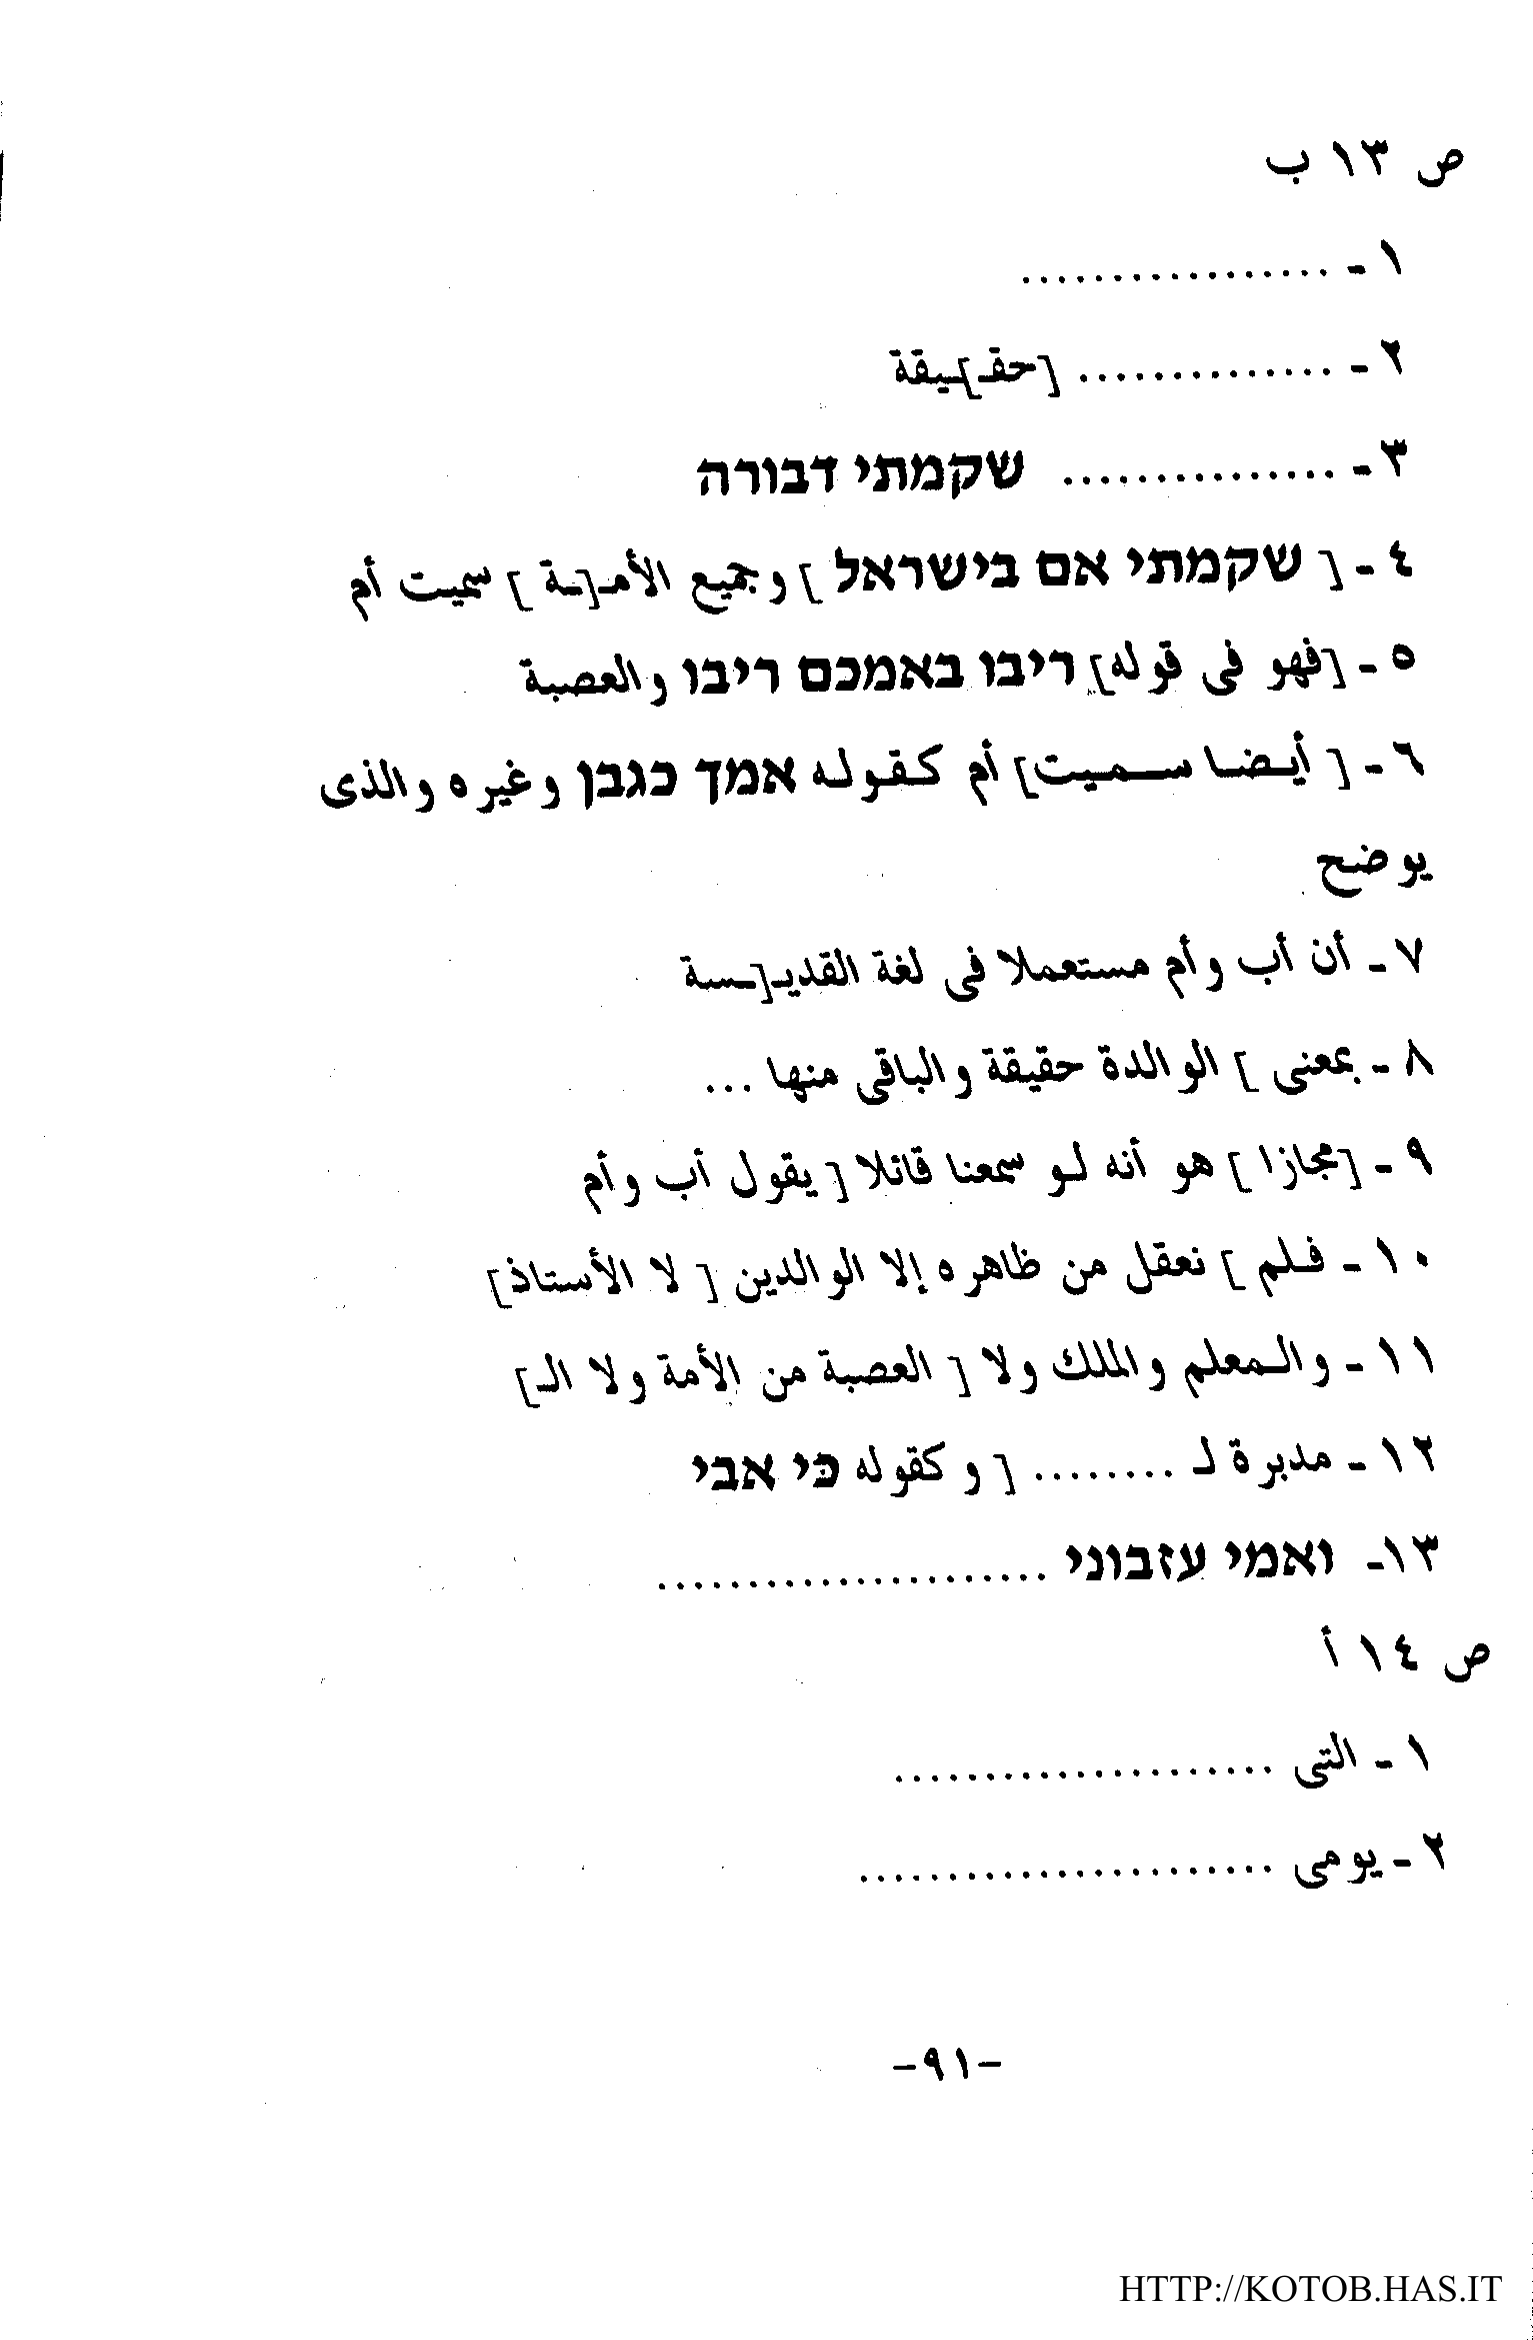 ص ١٣ ب
١ - .................
٢ - .............. [حقـ]ـيقة
٣ - ............... שקמתי דבורה
٤ - [ שקמתי אם בישראל ] وجميع الأمـ[ـة ] سميت أم
٥ - [فهو فى قوله] ריבו באמכם ריבו والعصبة
٦ - [ أيضا سميت] أم كقوله אמך כגבן وغيره والذى
يوضح
٧ - أن أب وأم مستعملا فى لغة القديـ[ـسة
٨ - بمعنى ] الوالدة حقيقة والباقى منها ...
٩ - [مجازا ] هو أنه لو سمعنا قائلا [ يقول أب وأم
١٠ - فلم ] نعقل من ظاهره إلا الوالدين [ لا الأستاذ]
١١ - والمعلم والملك ولا [ العصبة من الأمة ولا الـ]
١٢ - مدبرة لـ ........ [ وكقوله כי אבי
١٣- ואמי עזבוני ......................
ص ١٤ أ
١ - التى .....................
٢ - يومى .......................
-٩١-
HTTP://KOTOB.HAS.IT